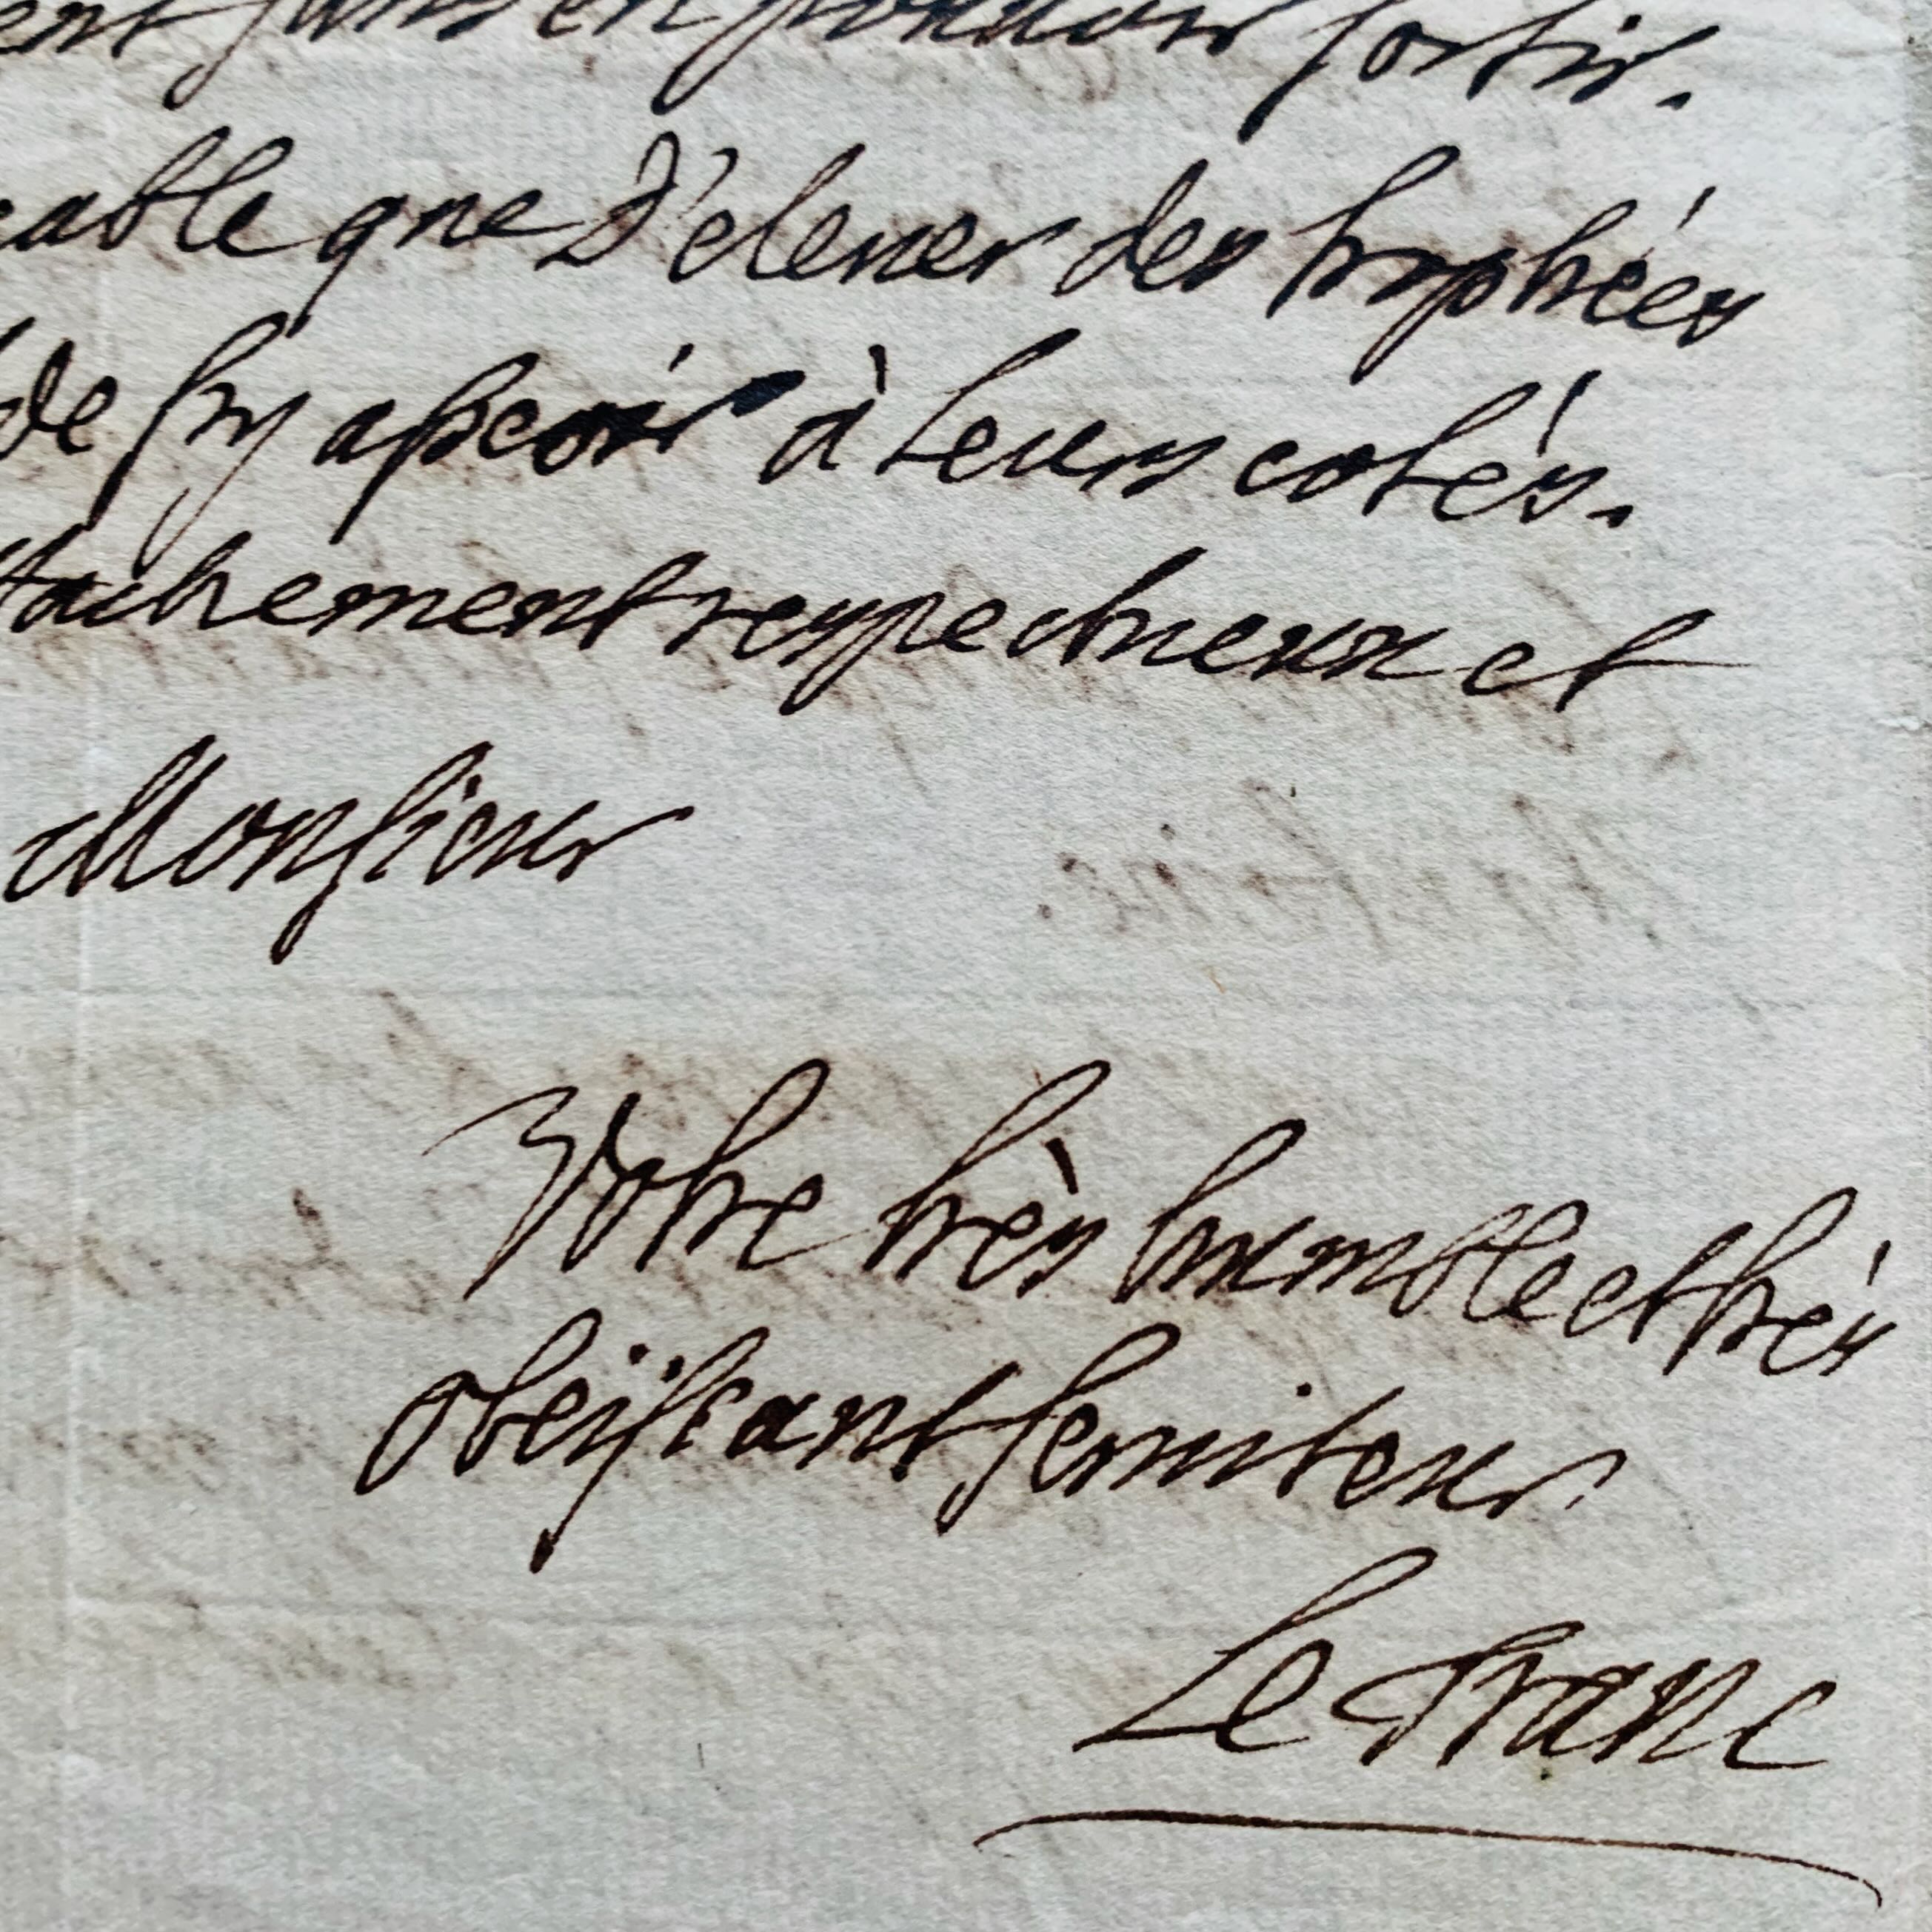 ent sans en pouvoir sortir.
cable que d'elever des trophées
de s'y asseoir à leurs cotés.
tachement respectueux et
Monsieur
Votre très humble et très
obeÿssant serviteur
Le Franc